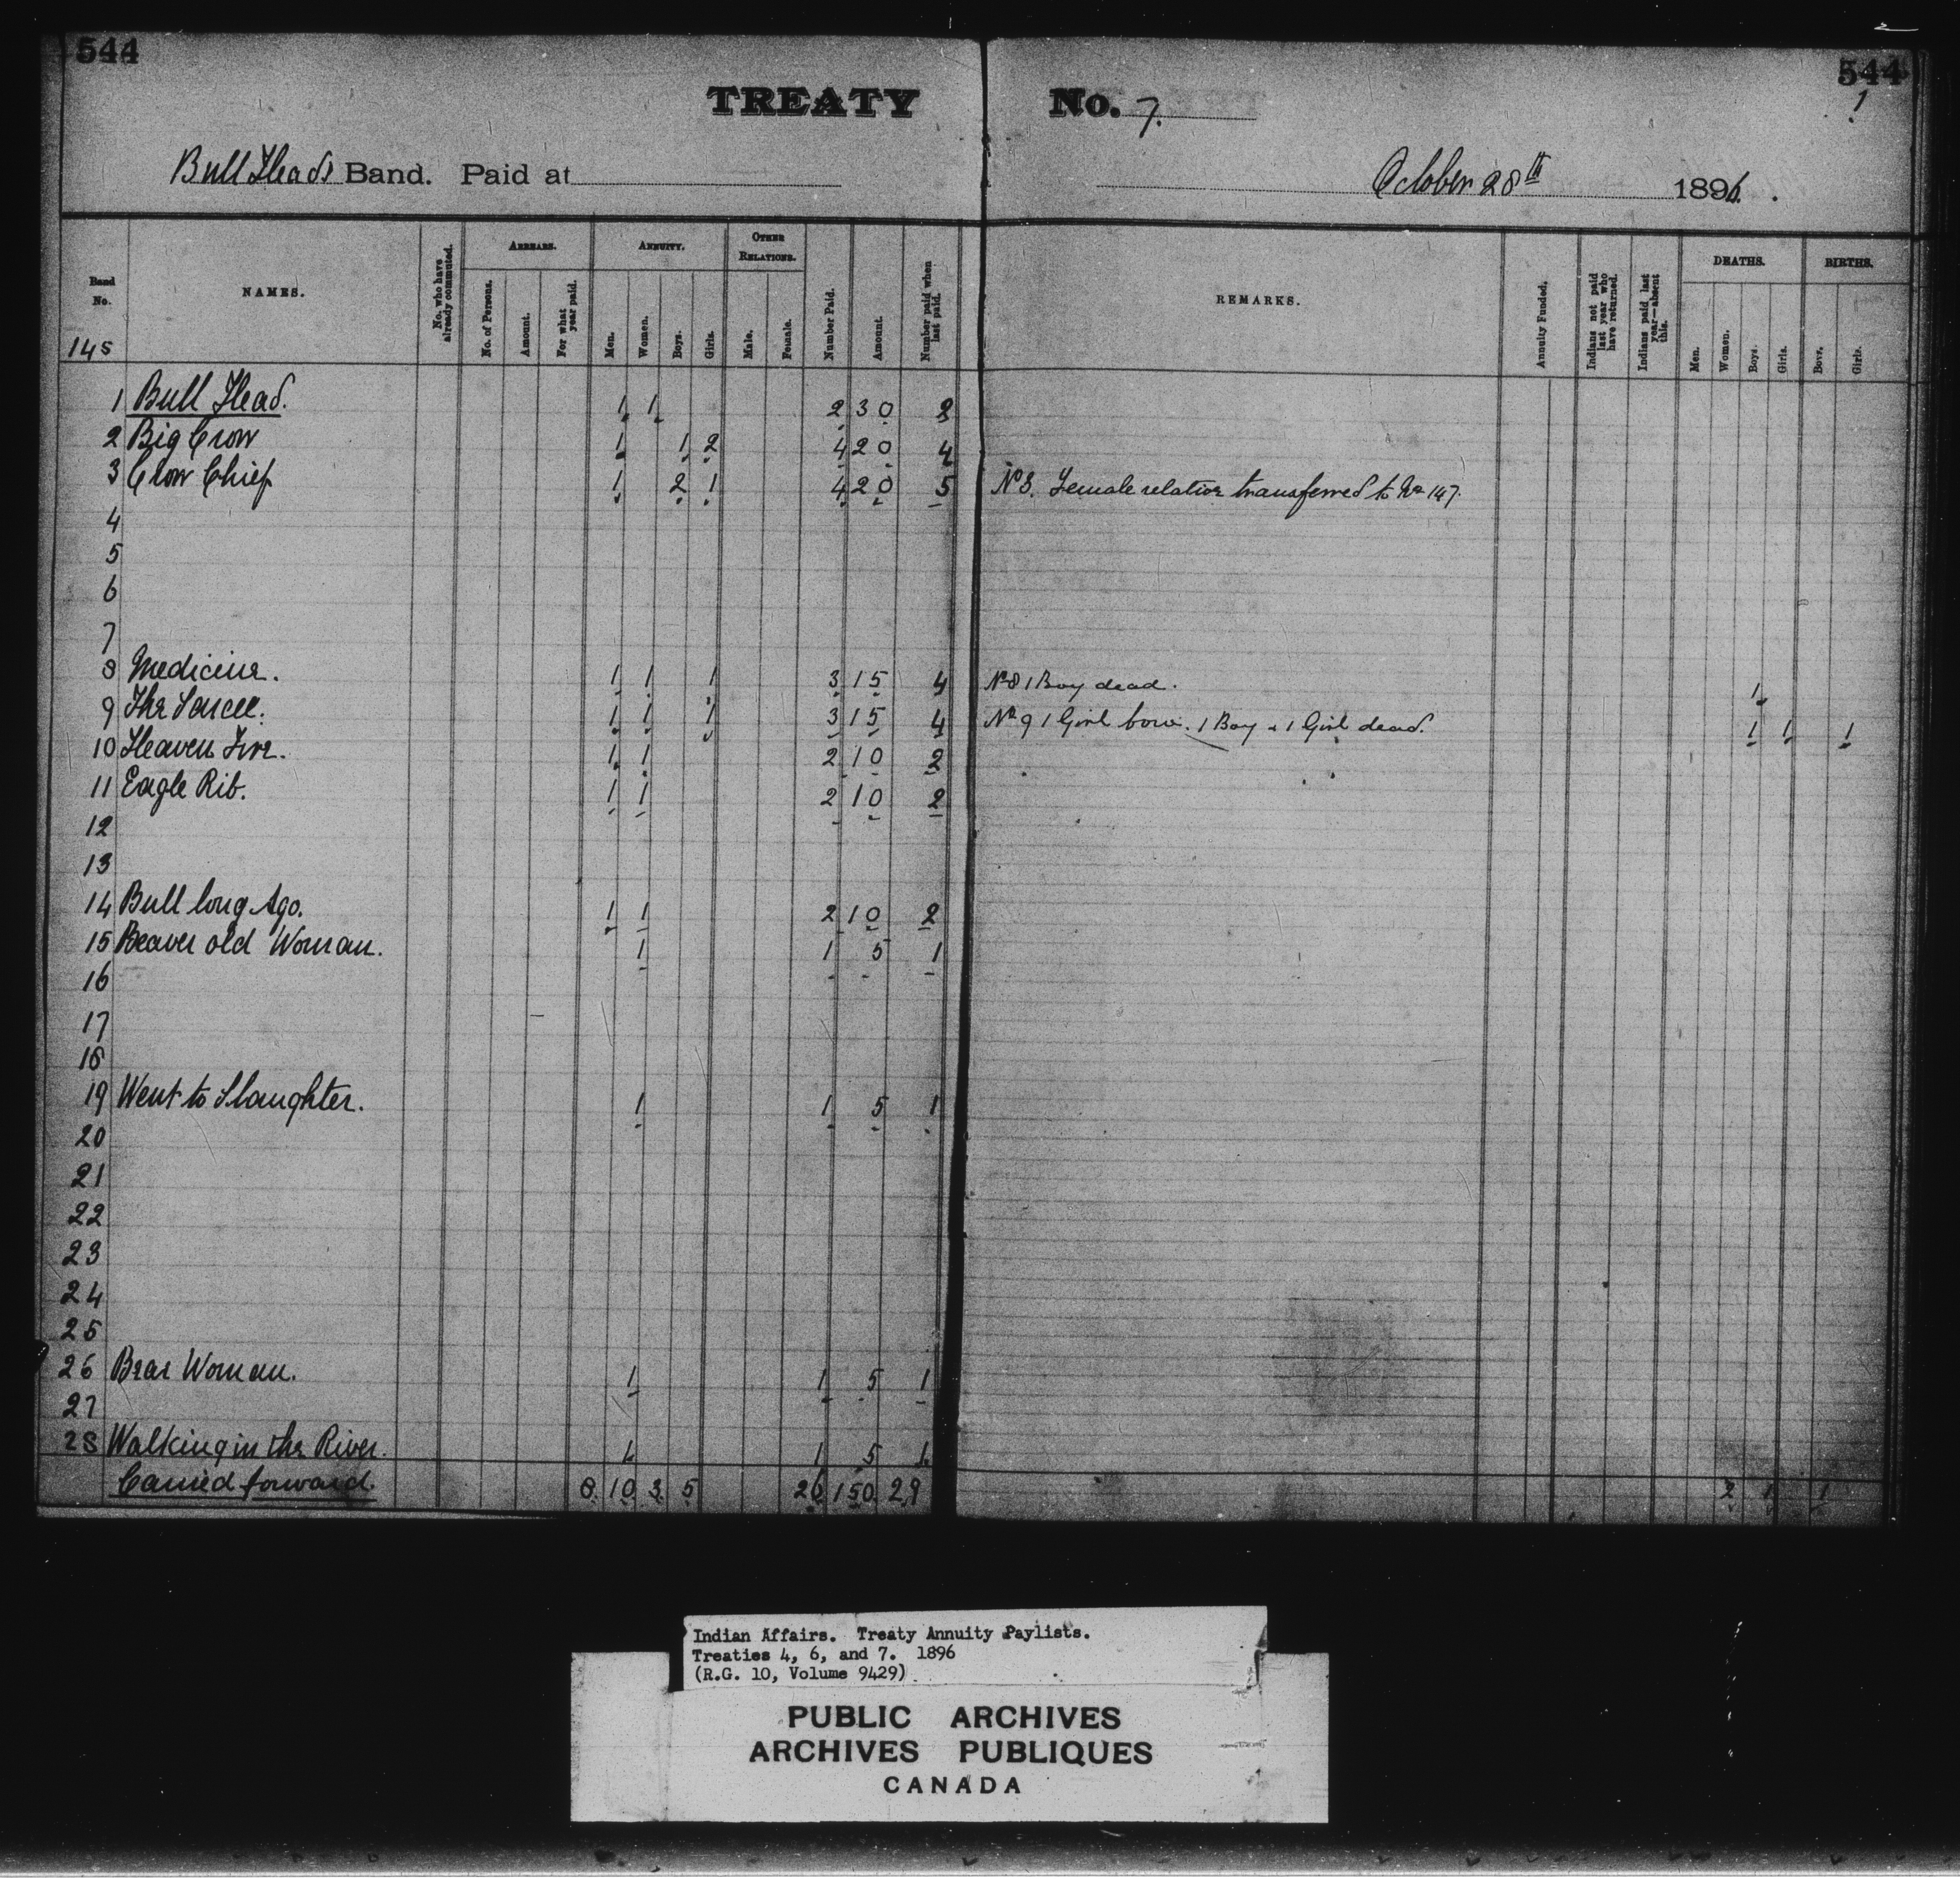 544
544
1
TREATY No. 7.
Bull Heads Band. Paid at October 28th 1896.
Band No. NAMES. No. who have already commuted. ARREARS. No. of Persons. Amount. For what year paid. ANNUITY. Men. Women. Boys. Girls. OTHER RELATIONS. Male. Female. Number Paid. Amount. Number paid when last paid. REMARKS. Annuity Funded. Indians not paid last year who have returned. Indians paid last year—absent this. DEATHS. Men. Women. Boys. Girls. BIRTHS. Boys. Girls.
145
1 Bull Head. 1 1 2 30 2
2 Big Crow 1 1 2 4 20 4
3 Crow Chief 1 2 1 4 20 5 No 3. Female relative transferred to No 147.
4
5
6
7
8 Medicine. 1 1 1 3 15 4 No 8 1 Boy dead. 1
9 The Sarcee. 1 1 1 3 15 4 No 9 1 Girl born. 1 Boy & 1 Girl dead. 1 1 1
10 Heaven Fire. 1 1 2 10 2
11 Eagle Rib. 1 1 2 10 2
12
13
14 Bull long Ago. 1 1 2 10 2
15 Beaver old Woman. 1 1 5 1
16
17
18
19 Went to Slaughter. 1 1 5 1
20
21
22
23
24
25
26 Bear Woman. 1 1 5 1
27
28 Walking in the River. 1 1 5 1
Carried forward. 8 10 3 5 26 150 29 2 1 1
Indian Affairs. Treaty Annuity Paylists.
Treaties 4, 6, and 7. 1896
(R.G. 10, Volume 9429)
PUBLIC ARCHIVES
ARCHIVES PUBLIQUES
CANADA